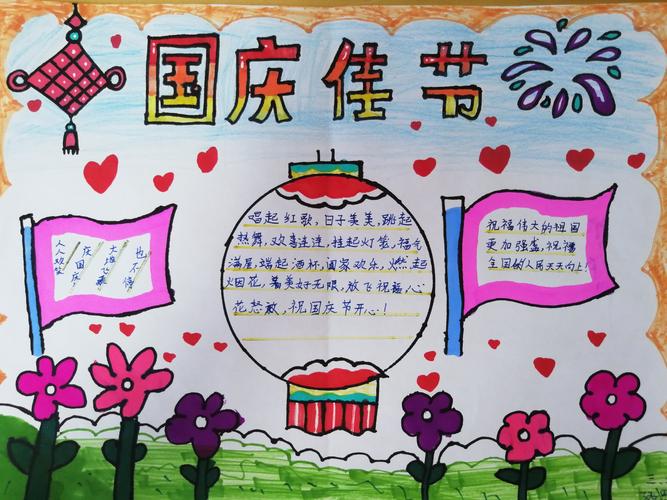 国庆佳节
人人欢笑
庆国庆
唱起红歌,日子美美,跳起
热舞,欢喜连连,挂起灯笼,福气
满屋,端起酒杯,阖家欢乐,燃起
烟花,着美好无限,放飞祝福,心
花怒放,祝国庆节开心!
祝福伟大的祖国
更加强盛,祝福
全国的人民天天向上!